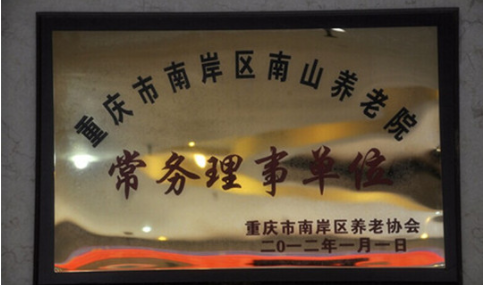 重庆市南岸区南山养老院
常务理事单位
重庆市南岸区养老协会
二0一二年一月一日